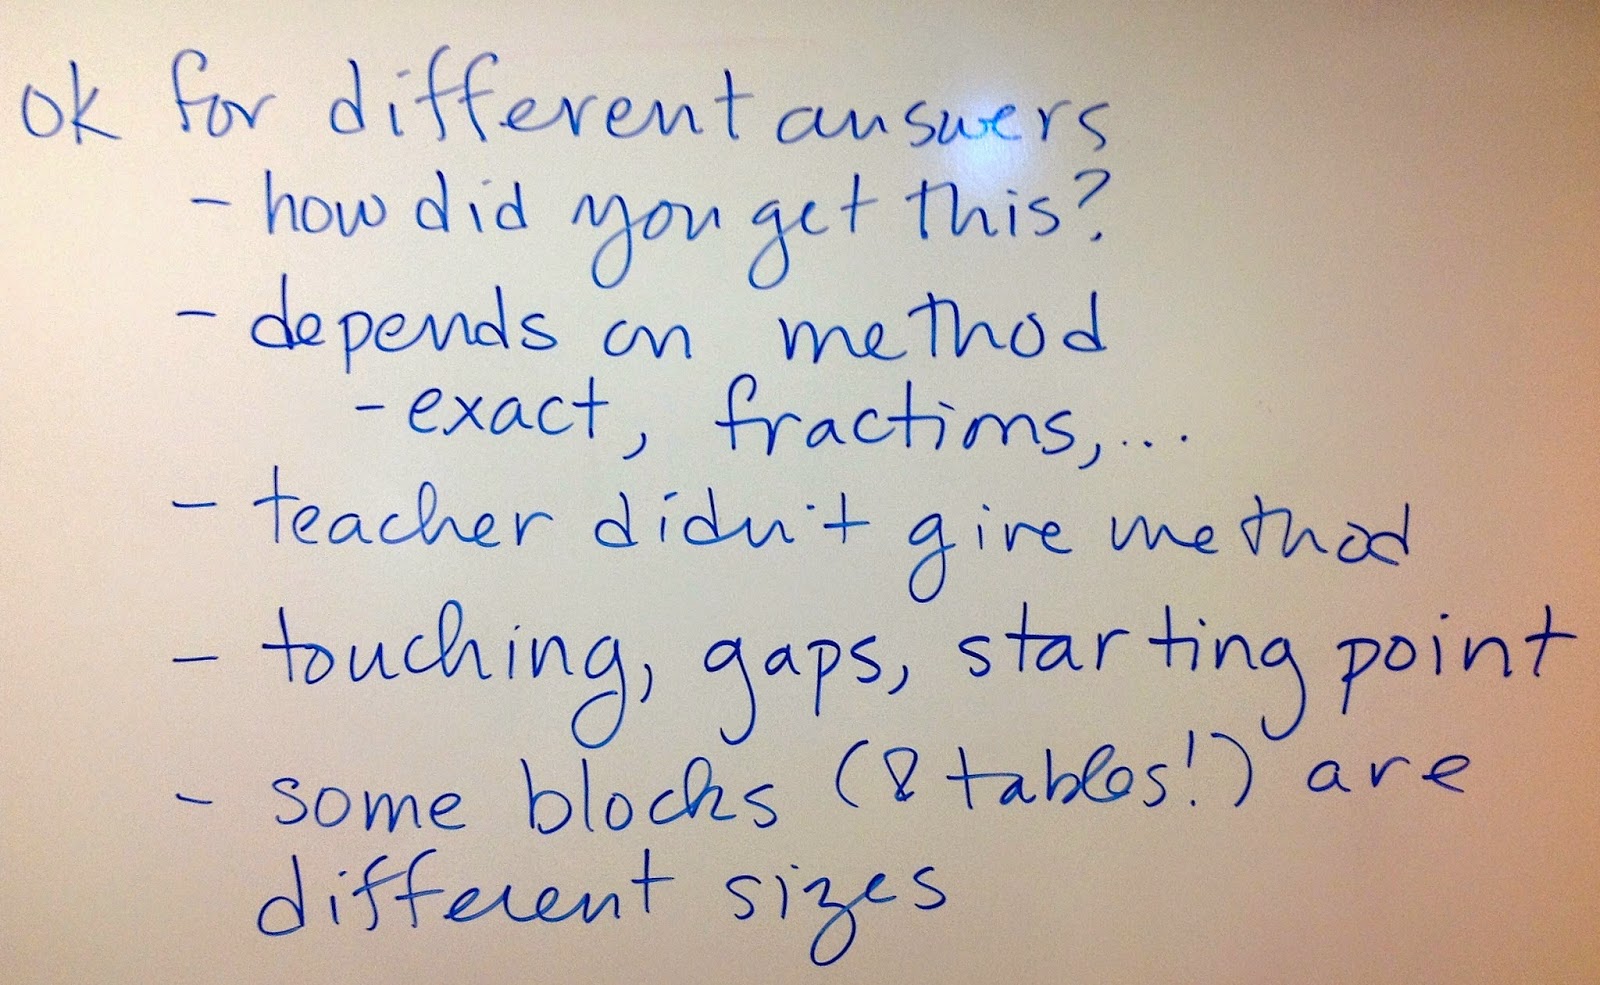 ok for different answers
- how did you get this?
- depends on method
- exact, fractions,...
- teacher didn't give method
- touching, gaps, starting point
- some blocks (& tables!) are
different sizes